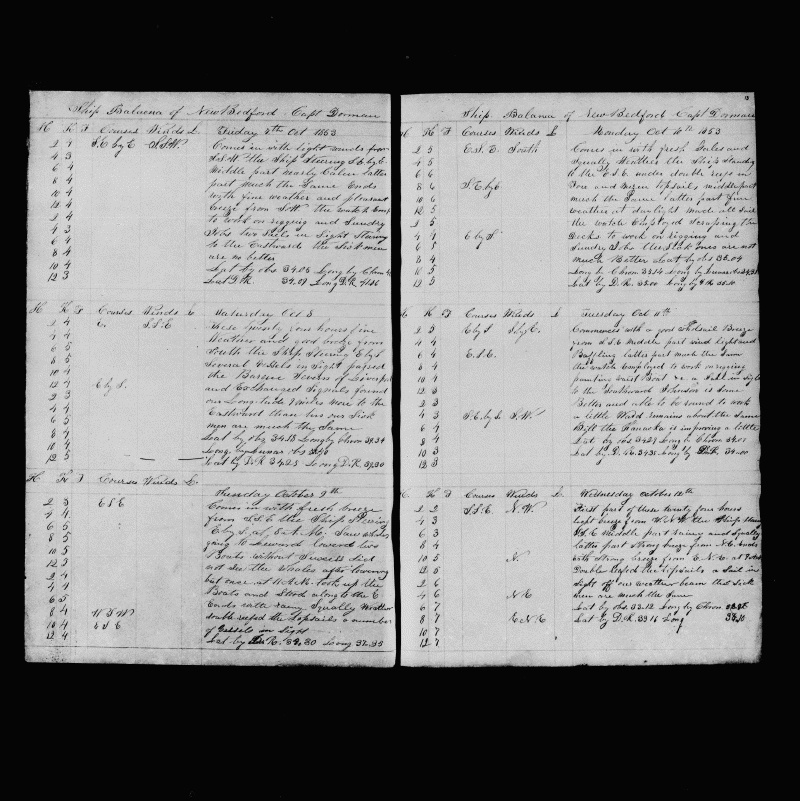 Ship Balaena of New Bedford Capt Dorman
H K F Courses Winds L Friday 7th Oct 1853
2 4 S.E. by E S.S.W Comes in with light winds from
4 3 S.S.W the Ship Steering S.E. by E
6 4 Middle part nearly Calm latter
8 4 part much the Same Ends
10 4 with fine weather and pleasant
12 4 breeze from S.W. the watch Emp
2 4 to work on rigging and Sundry
4 3 Jobs two Sails in Sight Steering
6 4 to the Eastward the Sick men
8 4 are no better
10 4 Lat by obs 34.05 Long by Chron
12 3 Lat D.R. 34.09 Long D.R.
H K F Courses Winds L Saturday Oct 8
2 4 E. S.S.E these twenty four hours fine
4 4 Weather and good breeze from
6 5 South the Ship Steering E by S.
8 5 Several Vessels in Sight passed
10 4 the Barque of Liverpool
12 4 E by S. and Exchanged Signals found
2 4 our Longitude miles more to the
4 4 Eastward than his our Sick
6 5 men are much the Same
8 4 Lat by obs 34.18 Long by Chron 39.34
10 4 Long by Lunar obs
12 5 Lat by D.R 34.23 Long D.R. 39.30
H K F Courses Winds L
Sunday October 9th
2 3 E S E Comes in with fresh breeze
4 4 from S.S.E the Ship Steering
6 5 E by S. at 8 A.M. Saw whales
8 5 going to leeward lowered two
10 5 Boats without Success Did
12 3 not see the Whales after lowering
2 4 but once at 11 A.M. took up the
4 4 Boats and Stood along to the E
6 5 Ends with rainy Squally Weather
8 4 W S W double reefed the topsails a number
10 4 E S E of Vessels in Sight
12 4 Lat by D.R. Long 37.35
13
Ship Balaena of New Bedford Capt Dorman
H K F Courses Winds L Monday Oct 10th 1853
2 5 E.S.E. South Comes in with fresh Gales and
4 5 Squally Weather the Ship Standing
6 6 to the E.S.E. under double reefs in
8 6 S.E. by E Fore and Mizen topsails middle part
10 6 much the Same latter part fine
12 5 Weather at daylight made all Sail
2 5 the watch Employed Scraping the
4 4 E by S Decks to work on rigging and
6 5 Sundry Jobs the Sick ones are not
8 4 much Better Lat by obs 33.04
10 5 Long by Chron Long by Lunar obs
12 5 Lat by D.R. 33.00 Long by D.R.
H K F Courses Winds L Tuesday Oct 11th
2 3 E by S S by E. Commences with a good Studsail Breeze
4 4 from S.S.E Middle part wind light and
6 4 E.S.E. Baffling latter part much the Same
8 4 the watch Employed to work on rigging
10 4 painting waist Boat &c. a Sail in Sight
12 4 to the Southward Johnson is some
2 3 Better and able to be round to work
4 3 S.E. by E. S.W a little Wedd remains about the Same
6 4 Bill the Kanacka is improving a little
8 4 Lat. by obs 34.27 Long by Chron
10 3 Lat by D.R. Long by D.R. 34.00
12 3
H K F Courses Winds L Wednesday October 12th
2 2 S.S.E. N.W. First part of these twenty four hours
4 3 light breeze from W.N.W the Ship Steering
6 3 S.S.E Middle part rainy and Squally
8 4 latter part Strong breeze from N.E. Ends
10 5 N. with Strong breeze from E.N.E. at
12 5 Double reefed the topsails a Sail in
2 6 Sight off our weather beam the Sick
4 6 N E men are much the Same
6 7 Lat by obs. 33.12 Long by Chron
8 7 E N E Lat by D.R. 33 16 Long 34.10
10 7
12 7